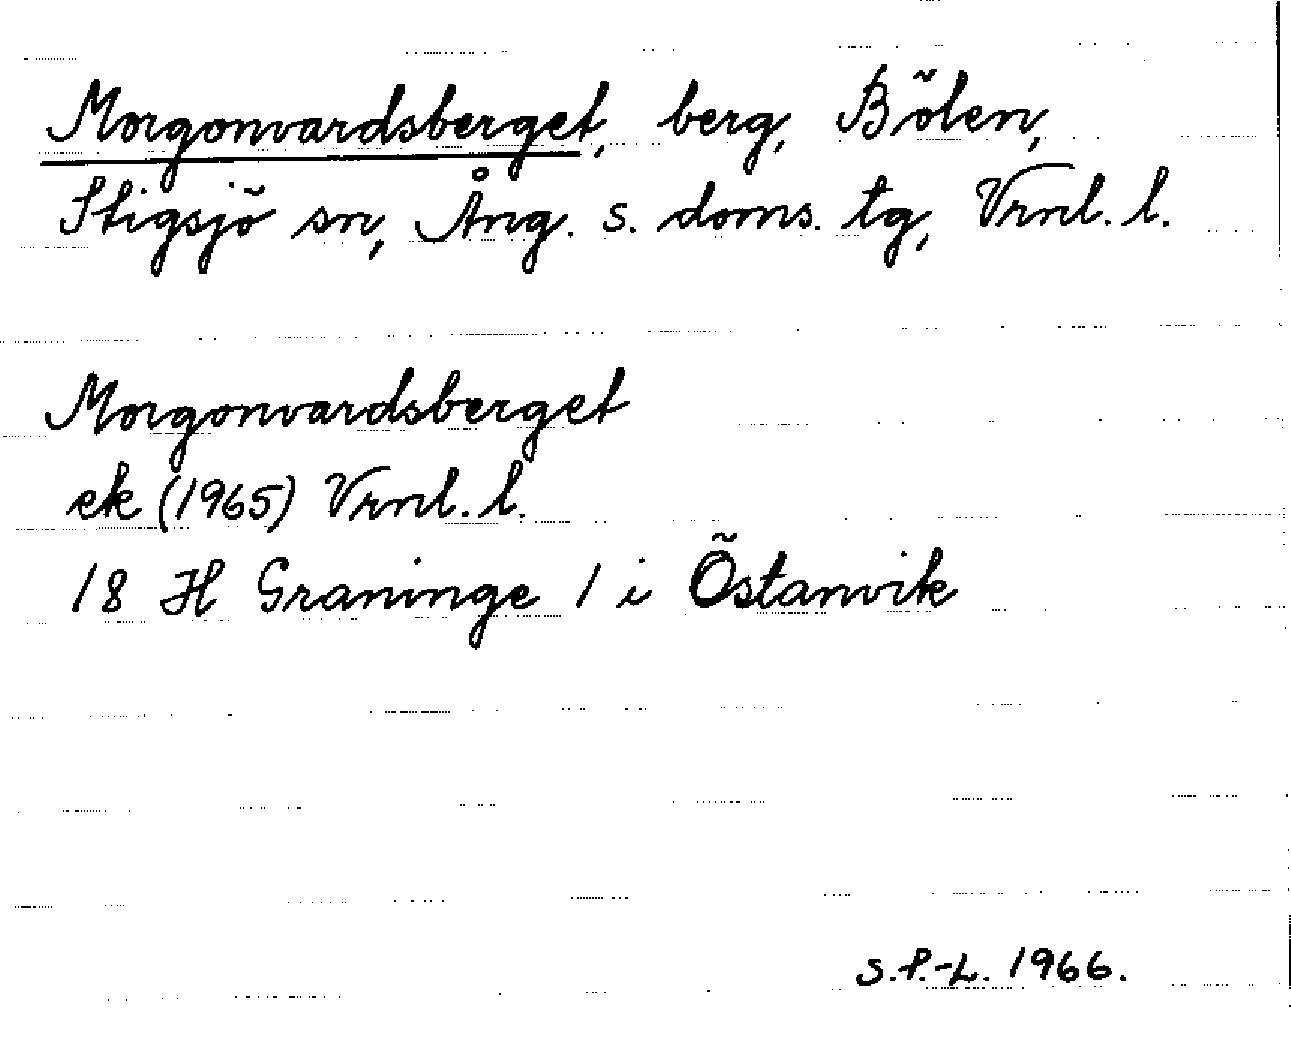 Morgonvardsberget, berg, Bölen,
Stigsjö sn, Ång. s. doms. tg, Vrnl. l.
Morgonvardsberget
ek (1965) Vrnl. l.
18 H Graninge 1 i Östanvik
S.P.-L. 1966.